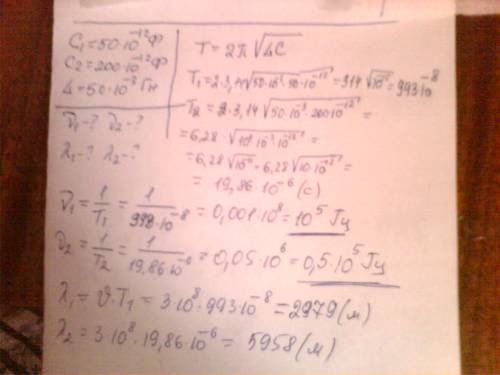 C₁=50·10⁻¹²Ф
C₂=200·10⁻¹²Ф
L=50·10⁻³Гн
ν₁-? ν₂-?
λ₁-? λ₂-?
T=2π√LC
T₁=2·3,14√50·10⁻³·50·10⁻¹²=314√10⁻¹⁵=993·10⁻⁸
T₂=2·3,14√50·10⁻³·200·10⁻¹²=
=6,28·√10⁴·10⁻³·10⁻¹²=
=6,28√10⁻¹¹=6,28√10·10⁻¹²=
=19,86·10⁻⁶(с)
ν₁=1/T₁=1/993·10⁻⁸=0,001·10⁸=10⁵Гц
ν₂=1/T₂=1/19,86·10⁻⁶=0,05·10⁶=0,5·10⁵Гц
λ₁=ϑ·T₁=3·10⁸·993·10⁻⁸=2979(м)
λ₂=3·10⁸·19,86·10⁻⁶=5958(м)